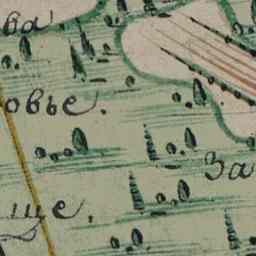 ва
овье.
За
ще.